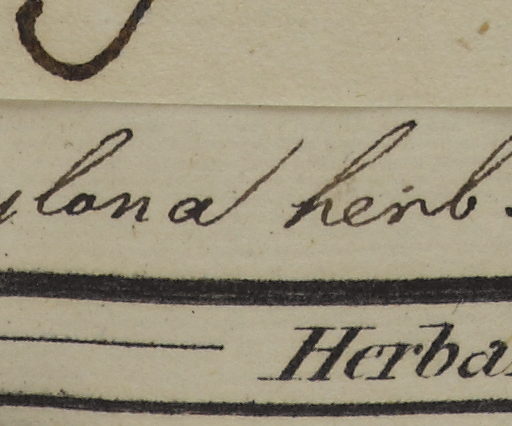 ylona herb.
Herba